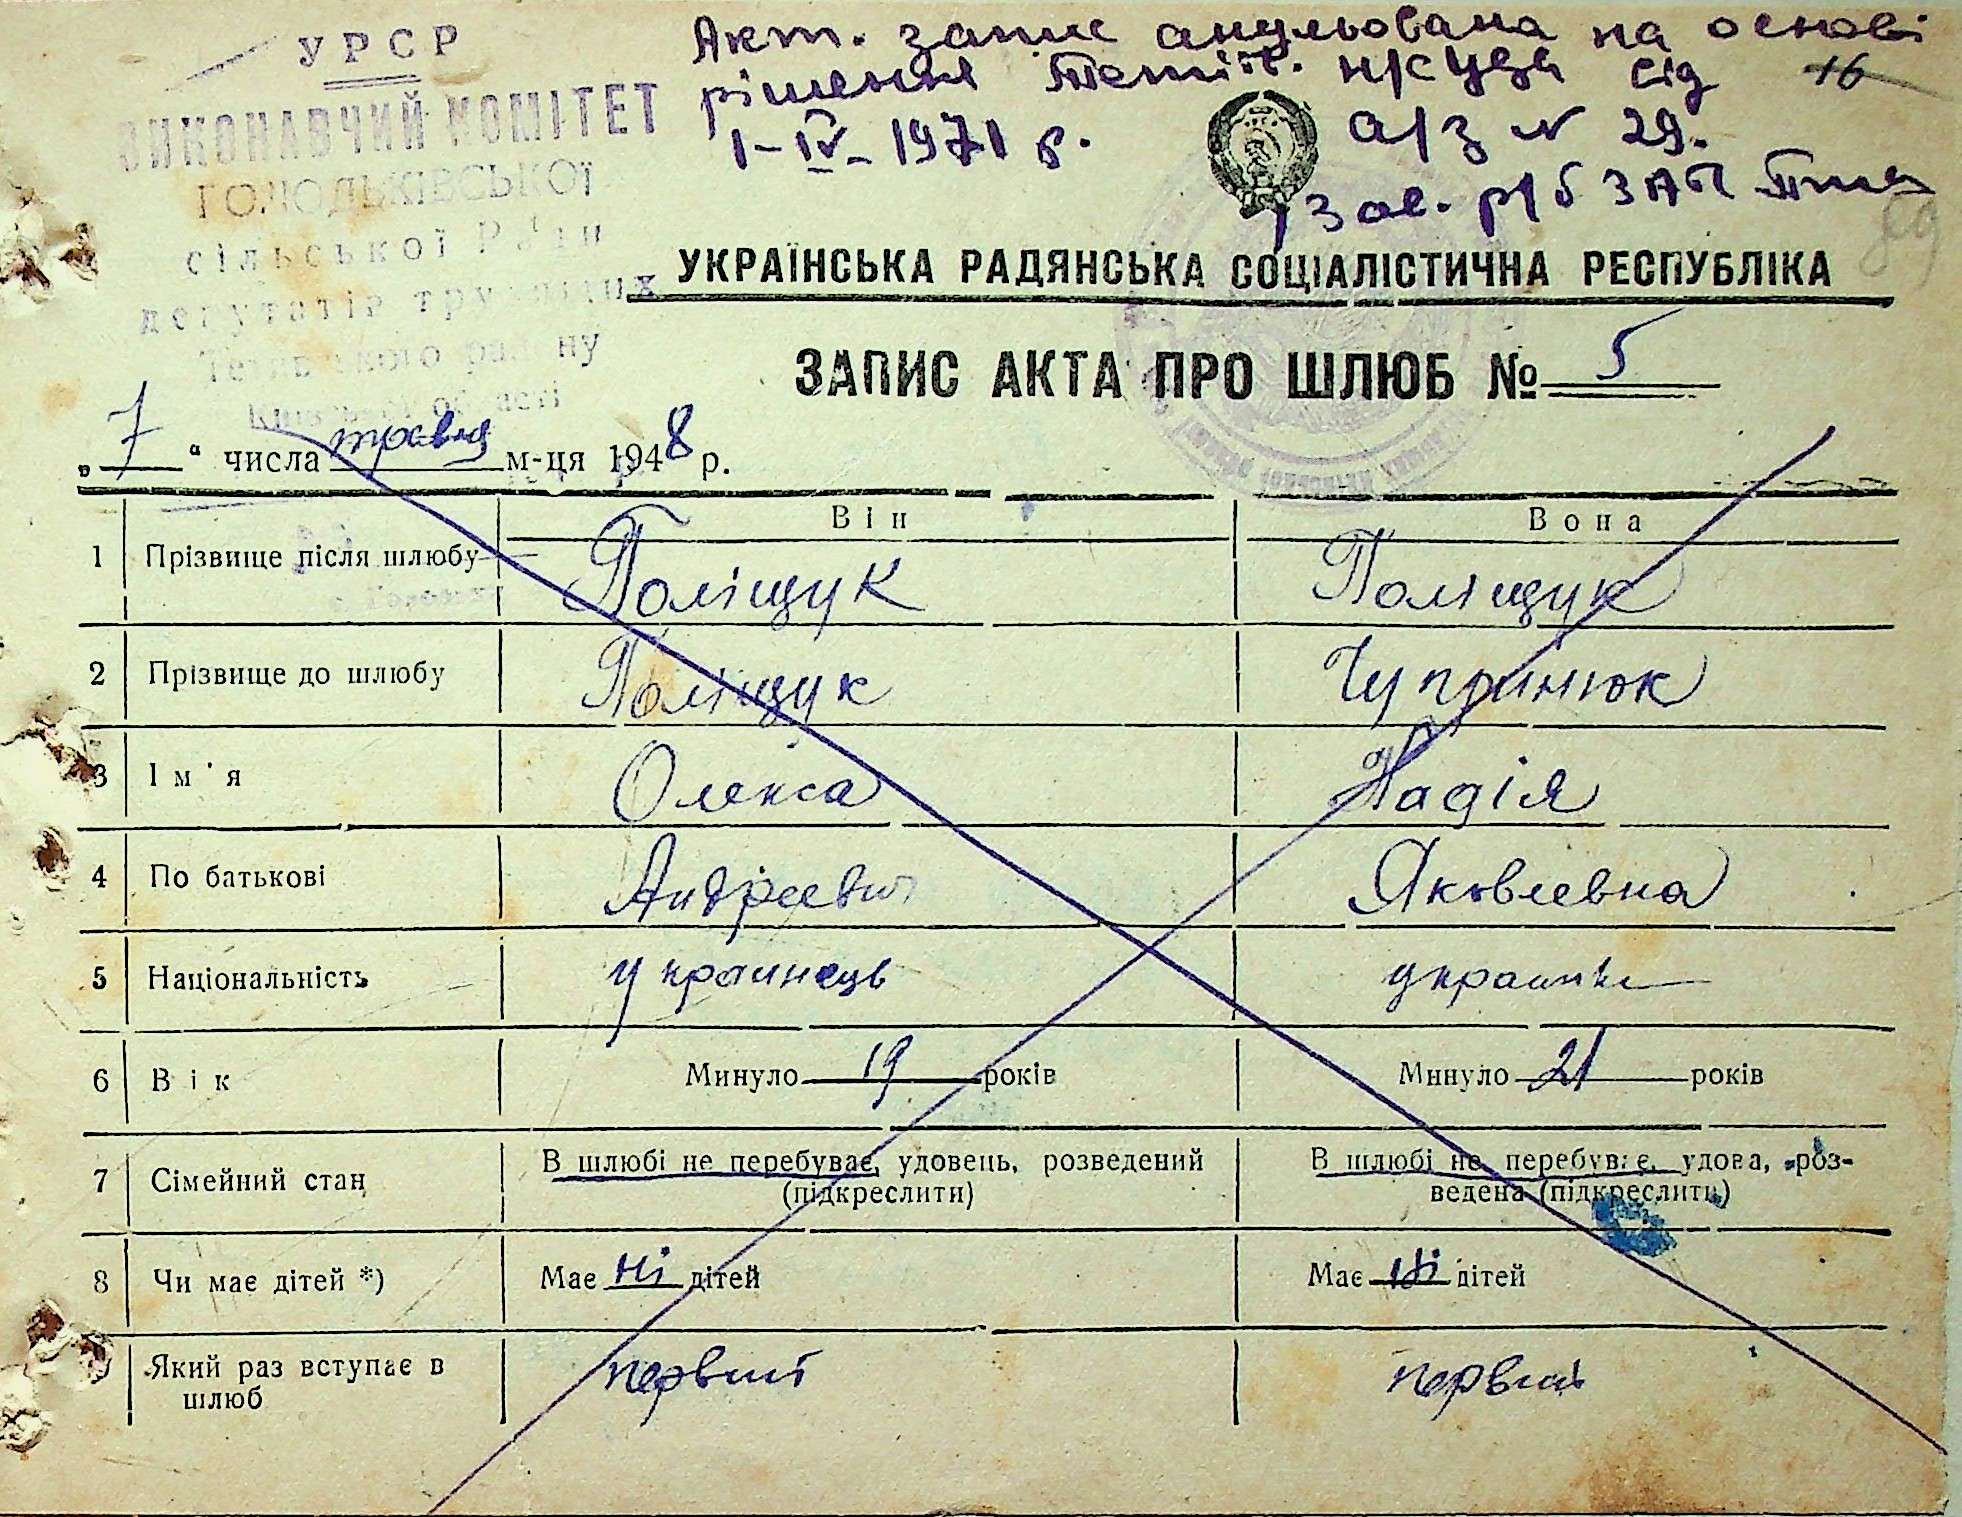 УРСР
ВИКОНАВЧИЙ КОМІТЕТ
ГОЛОДЬКІВСЬКОЇ
сільської Ради
депутатів трудящих
Тетіївського району
Київської області
Акт. запис анульована на основі
рішення Тетіїв. нарсуда від 16
1-IV-1971 р. а/з N 29.
зав. р/б ЗАГС
УКРАЇНСЬКА РАДЯНСЬКА СОЦІАЛІСТИЧНА РЕСПУБЛІКА
ЗАПИС АКТА ПРО ШЛЮБ № 5
„7“ числа травня м-ця 1948 р.
Він Вона
1 Прізвище після шлюбу Поліщук Поліщук
2 Прізвище до шлюбу Поліщук Чупринюк
3 Ім'я Олекса Надія
4 По батькові Андрієвич Яковлевна
5 Національність украинець украинка
6 Вік Минуло 19 років Минуло 21 років
7 Сімейний стан В шлюбі не перебуває, удовець, розведений В шлюбі не перебуває, удова, роз-
(підкреслити) ведена (підкреслити)
8 Чи має дітей *) Має ні дітей Має ні дітей
9 Який раз вступає в первий первий
шлюб